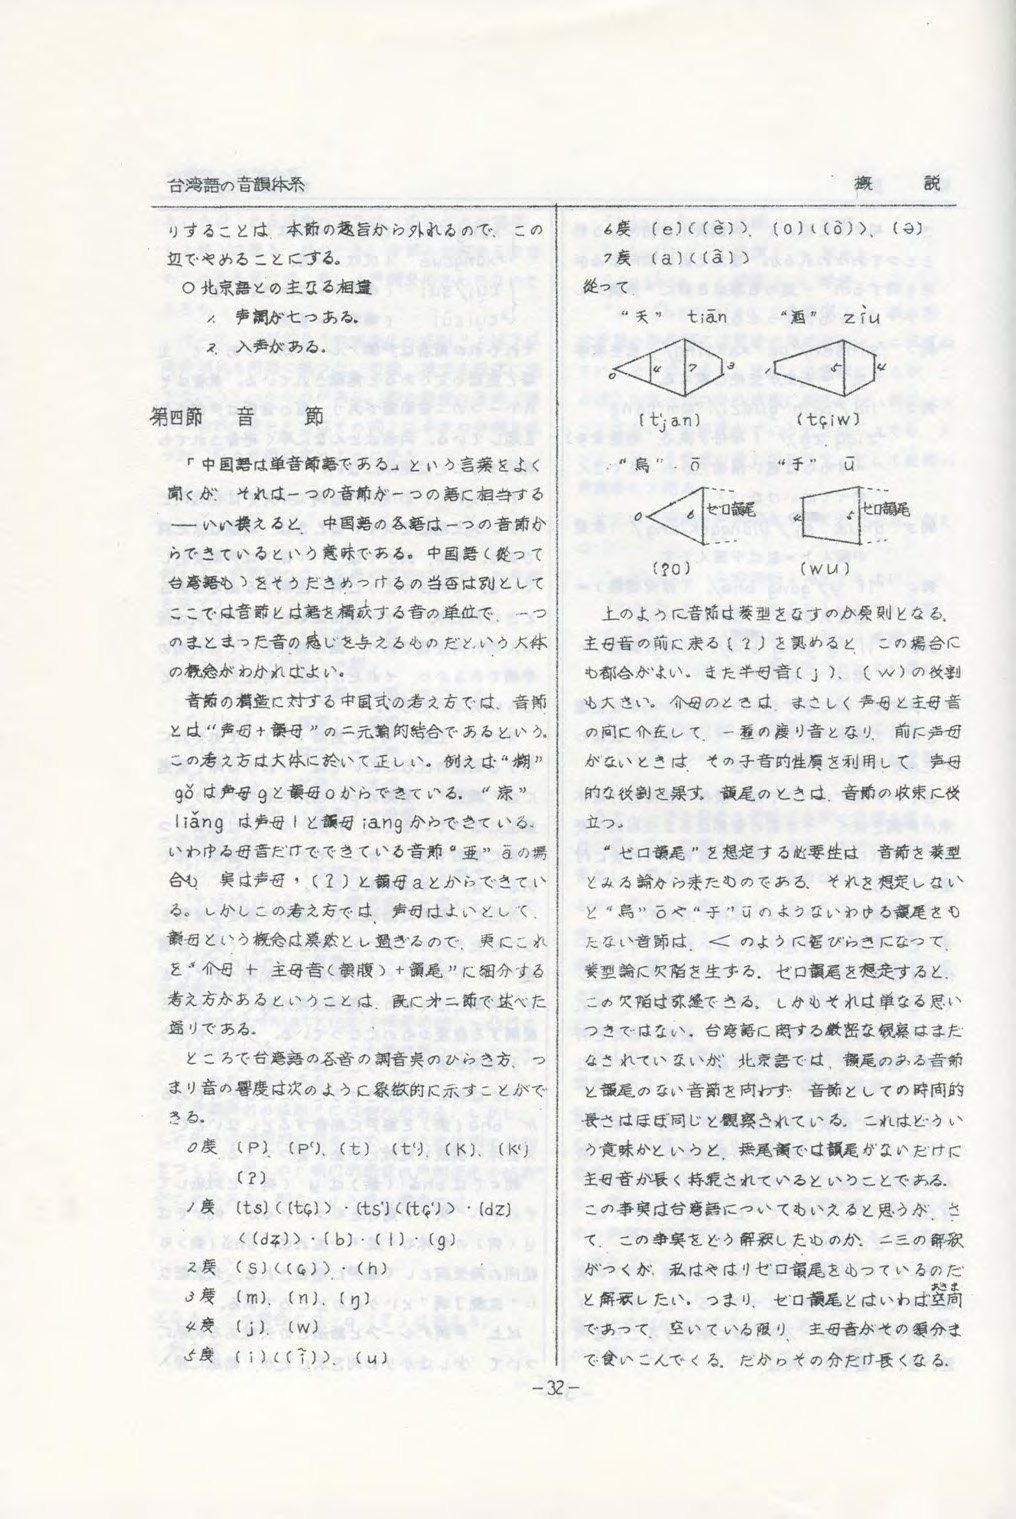 台湾語の音韻体系
概　説
りすることは、本節の趣旨から外れるので、この
辺でやめることにする。
○北京語との主なる相違
1. 声調が七つある。
2. 入声がある。
第四節　音　節
「中国語は単音節語である」という言葉をよく
聞くが、それは一つの音節が一つの語に相当する
――いい換えると、中国語の各語は一つの音節か
らできているという意味である。中国語(従って
台湾語も)をそうだときめつけるの当否は別として
ここでは音節とは語を構成する音の単位で、一つ
のまとまった音の感じを与えるものだという大体
の概念がわかればよい。
音節の構造に対する中国式の考え方では、音節
とは“声母+韻母”の二元論的結合であるという。
この考え方は大体に於いて正しい。例えば“糊”
gǒ は声母gと韻母oからできている。“凉”
liǎng は声母lと韻母iangからできている。
いわゆる母音だけでできている音節“亜”āの場
合も、実は声母，(ʔ)と韻母aとからできてい
る。しかしこの考え方では、声母はよいとして、
韻母という概念は漠然とし過ぎるので、更にこれ
を“介母 + 主母音(韻腹)+韻尾”に細分する
考え方があるということは、既に第二節で述べた
通りである。
ところで台湾語の各音の調音点のひらき方、つ
まり音の響度は次のように象徴的に示すことがで
きる。
0度 (P)、(P‘)、(t) (t‘)、(K)、(K‘)
(ʔ)
1度 (ts)((tɕ))・(ts‘)((tɕ‘))・(dz)
((dʑ))・(b)・(l)・(g)
2度 (S)((ɕ))・(h)
3度 (m)、(n)、(ŋ)
4度 (j)、(w)
5度 (i)((ĩ))、(u)
6度 (e)((ẽ))、(o)((õ))、(ə)
7度 (a)((ã))
従って、
“天” tiān　“酒” zìu
0 4 7 3　1 5 4
(t‘jan)　(tɕiw)
“烏” ō　“于” ū
0 6 ゼロ韻尾　4 5 ゼロ韻尾
(ʔo)　(wu)
上のように音節は菱型をなすのが原則となる。
主母音の前に来る(ʔ)を認めると、この場合に
も都合がよい。また半母音(j)、(w)の役割
も大きい。介母のときは、まさしく声母と主母音
の間に介在して、一種の渡り音となり、前に声母
がないときは、その子音的性質を利用して、声母
的な役割を果す。韻尾のときは、音節の収束に役
立つ。
“ゼロ韻尾”を想定する必要性は、音節を菱型
とみる論から来たものである。それを想定しない
と“烏”ōや“于”ūのようないわゆる韻尾をも
たない音節は、＜のように裾びらきになって、
菱型論に欠陥を生ずる。ゼロ韻尾を想定すると、
この欠陥は弥縫できる。しかもそれは単なる思い
つきではない。台湾語に関する厳密な観察はまだ
なされていないが、北京語では、韻尾のある音節
と韻尾のない音節を問わず、音節としての時間的
長さはほぼ同じと観察されている。これはどうい
う意味かというと、無尾韻では韻尾がないだけに
主母音が長く持続されているということである。
この事実は台湾語についてもいえると思うが、さ
て、この事実をどう解釈したものか。二三の解釈
がつくが、私はやはりゼロ韻尾をもっているのだ
と解釈したい。つまり、ゼロ韻尾とはいわば空間
であって、空いている限り、主母音がその領分ま
で食いこんでくる。だからその分だけ長くなる。
-32-